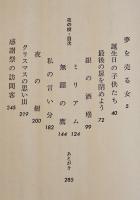 夜の樹・目次
夢を売る女 5
誕生日の子供たち 40
最後の扉を閉めよう 72
銀の酒壜 99
ミリアム 124
無頭の鷹 144
私の言い分 182
夜の樹 200
クリスマスの思い出 219
感謝祭の訪問客 245
あとがき 285